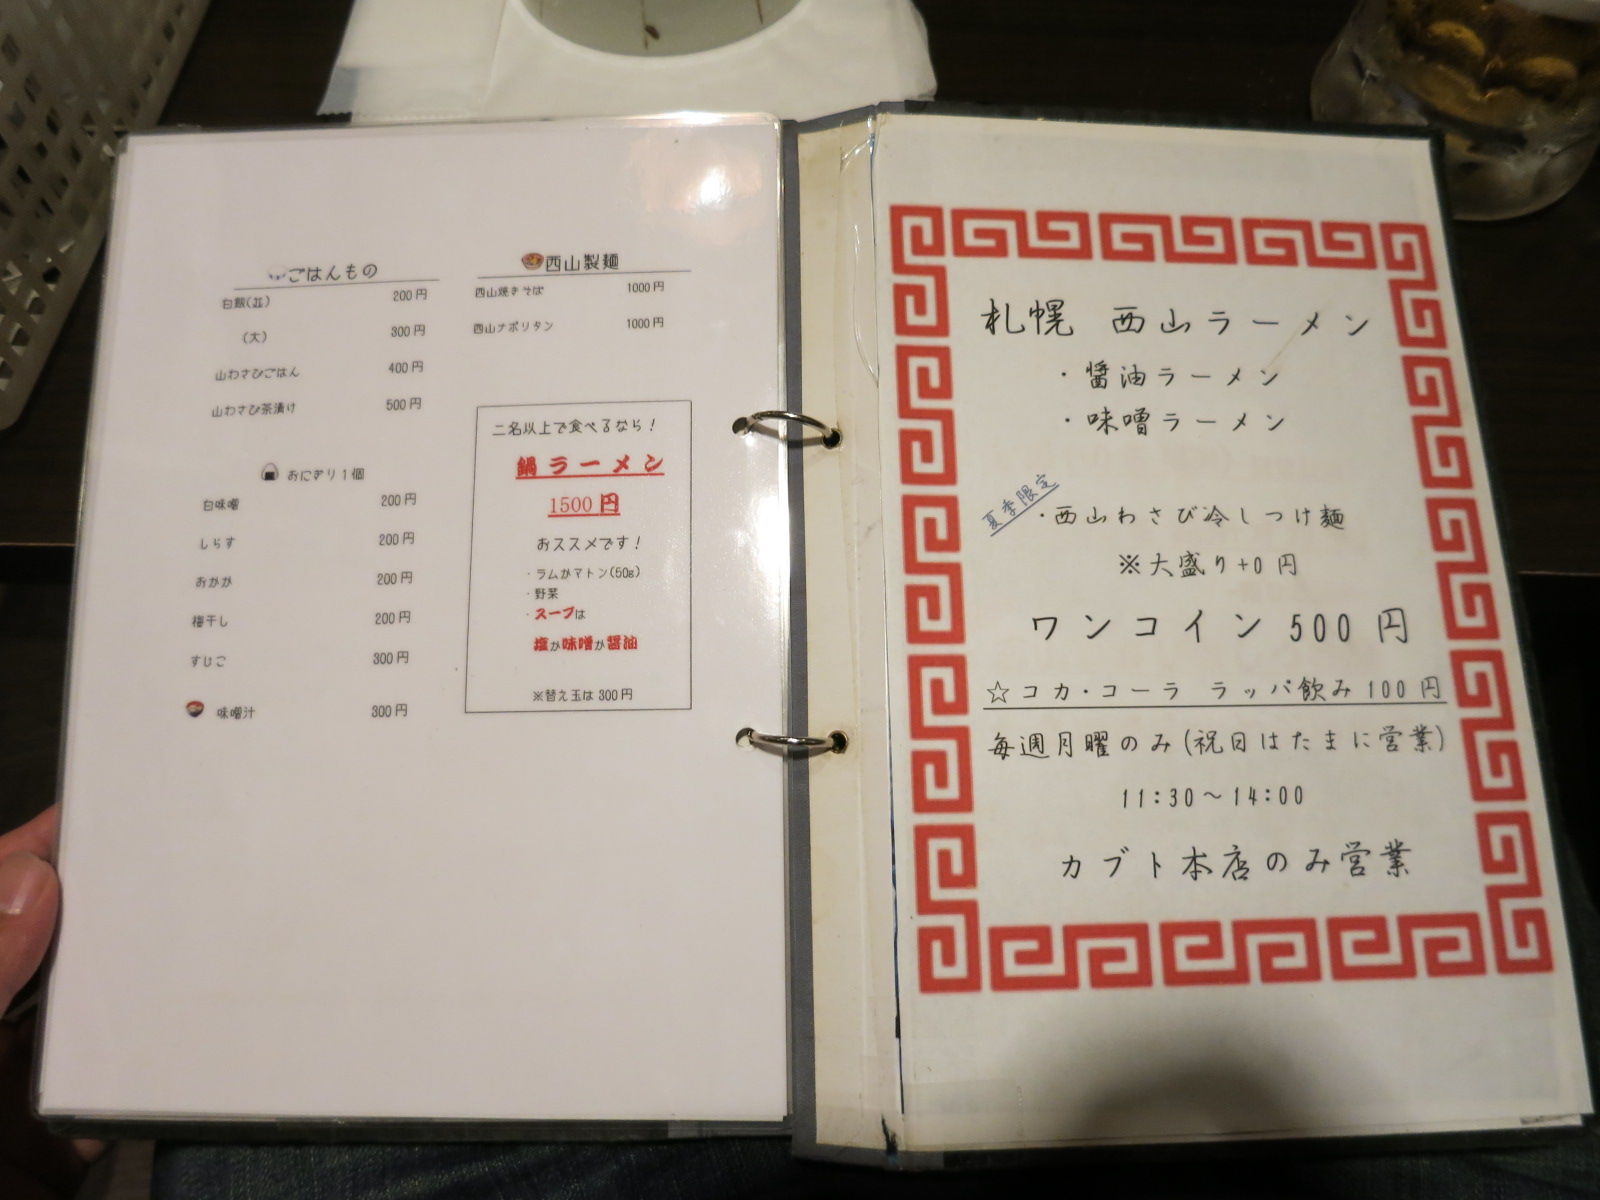 ごはんもの
白飯(並) 200円
(大) 300円
山わさびごはん 400円
山わさび茶漬け 500円
おにぎり1個
白味噌 200円
しらす 200円
おかか 200円
梅干し 200円
すじこ 300円
味噌汁 300円
西山製麺
西山焼きそば 1000円
西山ナポリタン 1000円
二名以上で食べるなら!
鍋ラーメン
1500円
おススメです!
・ラムかマトン(50g)
・野菜
・スープは
塩か味噌か醤油
※替え玉は300円
札幌 西山ラーメン
・醤油ラーメン
・味噌ラーメン
夏季限定
・西山わさび冷しつけ麺
※大盛り+0円
ワンコイン500円
☆コカ・コーラ ラッパ飲み100円
毎週月曜のみ(祝日はたまに営業)
11:30~14:00
カブト本店のみ営業